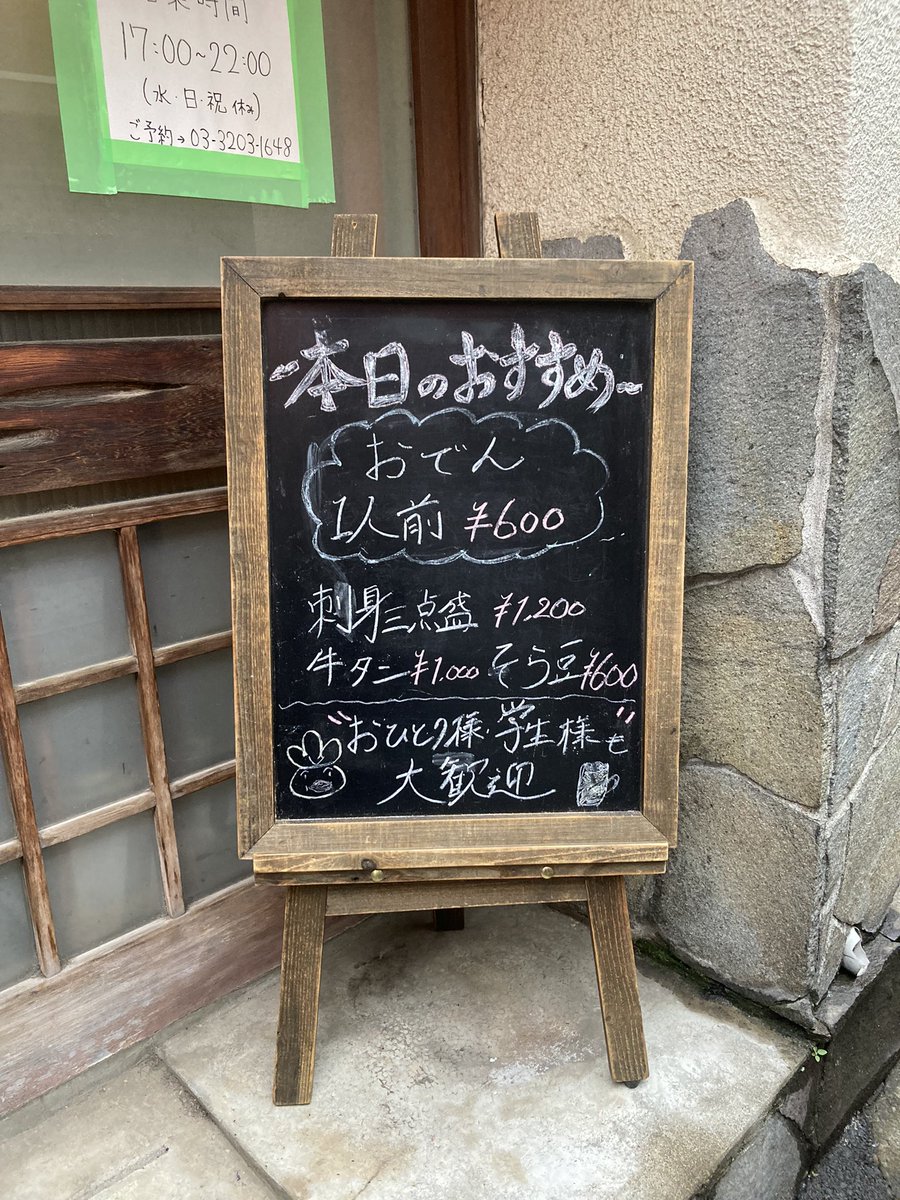 営業時間
17:00~22:00
(水・日・祝 休み)
ご予約→03-3203-1648
~本日のおすすめ~
おでん
1人前 ¥600
刺身三点盛 ¥1,200
牛タン ¥1.000 そら豆 ¥600
"おひとり様・学生様"も
大歓迎